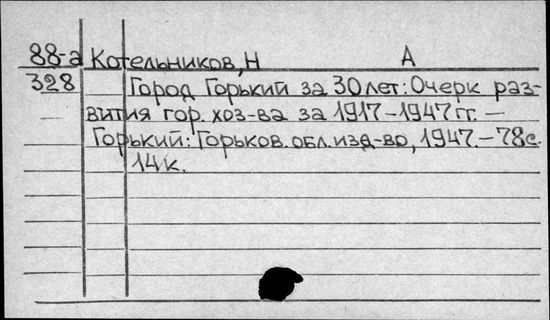 88-а Котельников, Н А
328 Город Горький за 30 лет: Очерк раз-
вития гор. хоз-ва за 1917-1947 гг. —
Горький: Горьков. обл. изд-во, 1947. - 78с.
14 к.